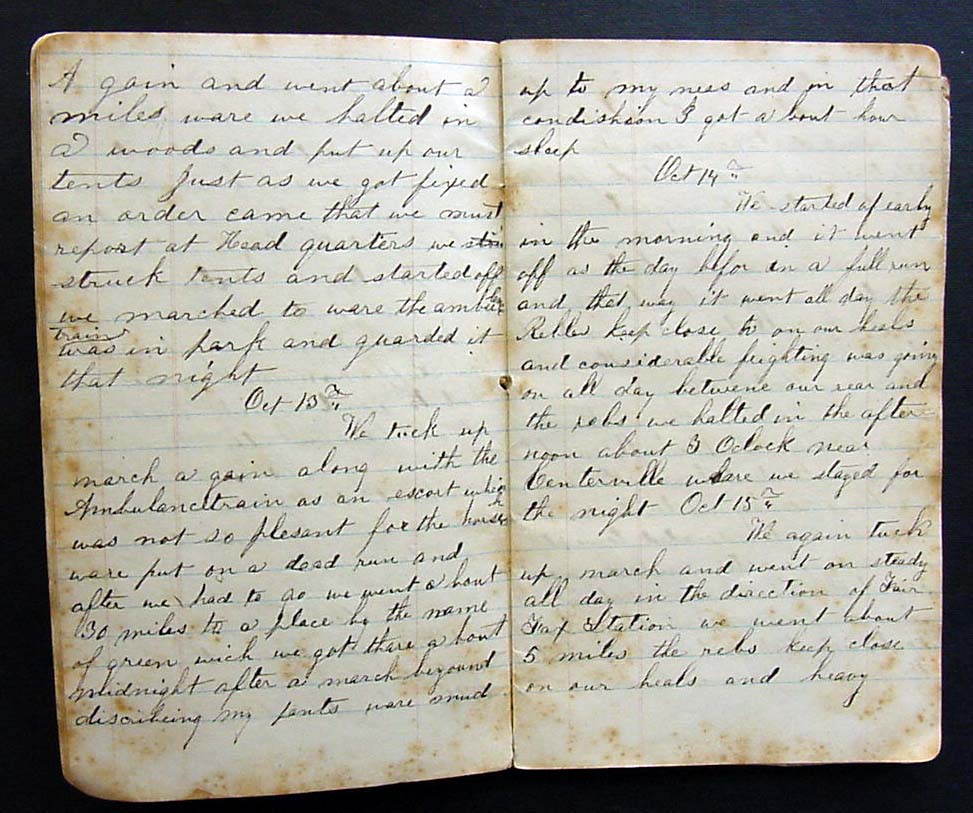 A gain and went about 2
miles ware we halted in
a woods and put up our
tents Just as we got fixed
an order came that we must
report at Head quarters we
struck tents and started off
we marched to ware the ambulance
train
was in park and guarded it
that night
Oct 13th
We tuck up
march a gain along with the
Ambulancetrain as an escort which
was not so plesant for the horses
ware put on a dead run and
after we had to go we went a bout
30 miles to a place by the name
of green wich we got thare a bout
midnight after a march beyount
discribeing my pants ware mud
up to my nees and in that
condishion I got a bout hour
sleep
Oct 14th
We started of early
in the morning and it went
off as the day befor in a full run
and that way it went all day the
Rebbs keep close to on our heals
and considerable feighting was going
on all day betwene our rear and
the rebs we halted in the after
noon about 3 Oclock near
Centerville whare we stayed for
the night Oct 15th
We again tuck
up march and went on steady
all day in the direction of Fair
Fax Station we went about
5 miles the rebs keep close
on our heals and heavy